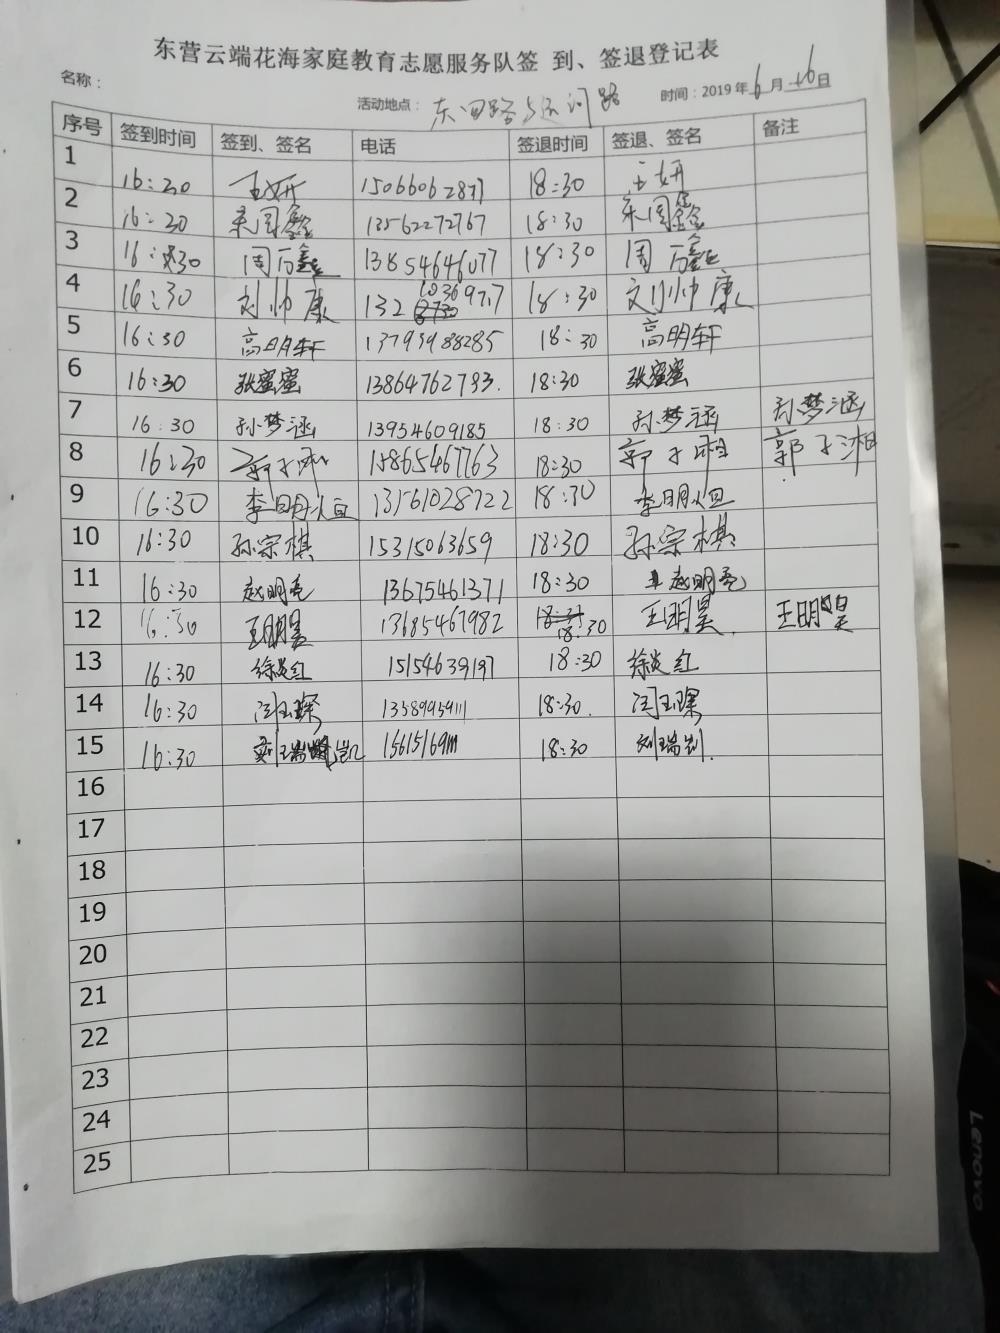 东营云端花海家庭教育志愿服务队签 到、签退登记表
名称：
活动地点： 东四路与运河路 时间：2019年6月16日
序号 签到时间 签到、签名 电话 签退时间 签退、签名 备注
1 16:30 王妍 15066062877 18:30 王妍
2 16:30 宋国鑫 13562272767 18:30 宋国鑫
3 16:30 周万鑫 13854646077 18:30 周万鑫
4 16:30 刘帅康 132 18:30 刘帅康
5 16:30 高明轩 13793988285 18:30 高明轩
6 16:30 张蜜蜜 13864762793. 18:30 张蜜蜜
7 16:30 孙梦涵 13954609185 18:30 孙梦涵 孙梦涵
8 16:30 郭子湘 15865467763 18:30 郭子湘 郭子湘
9 16:30 李明恒 13161028722 18:30 李明恒
10 16:30 孙宗棋 15315063659 18:30 孙宗棋
11 16:30 赵明亮 13675461371 18:30 赵明亮
12 16:30 王明昊 13685467982 18:30 王明昊 王明昊
13 16:30 徐炎红 15154639197 18:30 徐炎红
14 16:30 闫玉琛 13589959111 18:30. 闫玉琛
15 16:30 刘瑞凯 18:30 刘瑞凯.
16
17
18
19
20
21
22
23
24
25
Lenovo